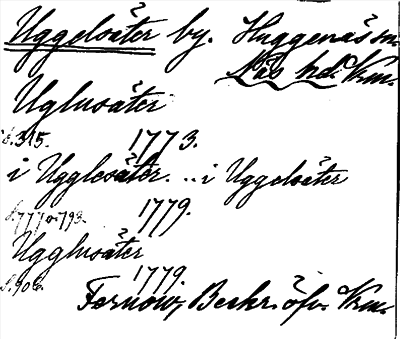 Uggelsäter by. Huggenäs sn.
Näs hd. Vrm.
Uglusäter
s. 315. 1773.
i Ugglesäter... i Uggelsäter
s. 777 o. 793. 1779.
Ugglusäter
s. 906. 1779.
Fernow, Beskr. öfv. Vrm.